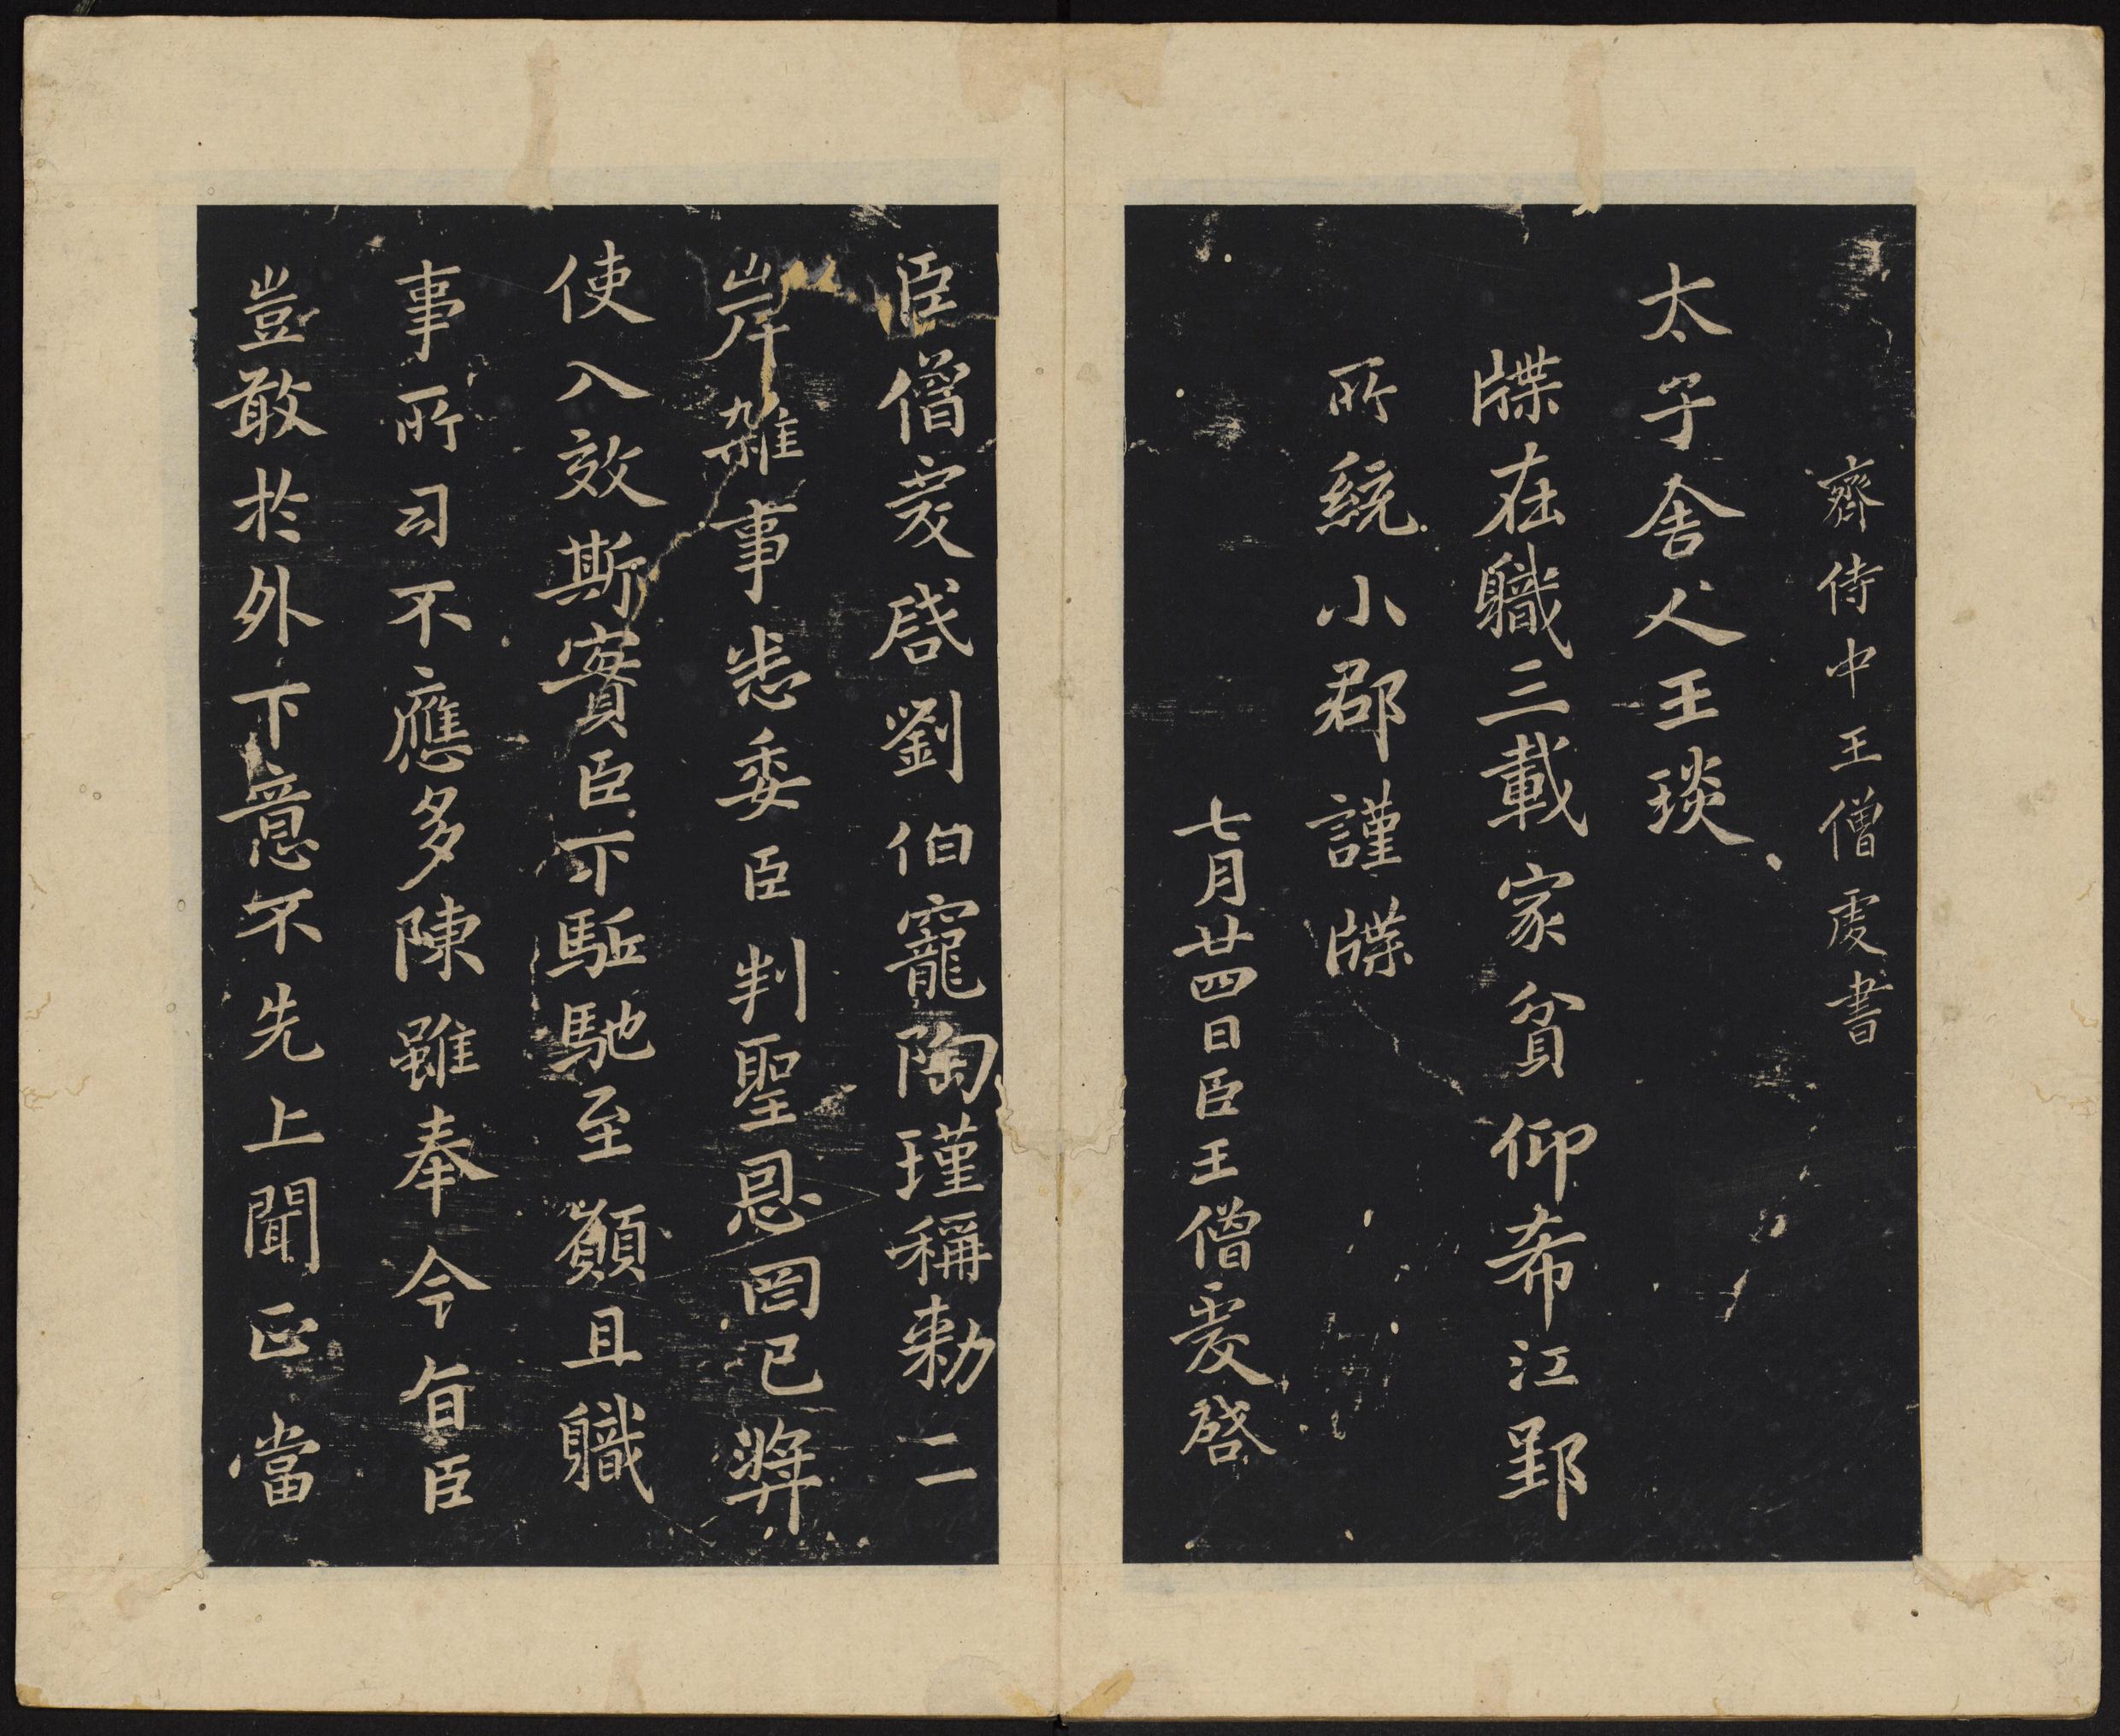 齊侍中王僧虔書
太子舍人王琰
牒在職三載家貧仰希江郢
所統小郡謹牒
七月廿四日臣王僧虔啓
臣僧虔啓劉伯寵陶瑾稱勅二
岸雜事悉委臣判聖恩罔已奬
使入效斯實臣下駈馳至願且職
事所司不應多陳雖奉令旨臣
豈敢於外下意不先上聞正當